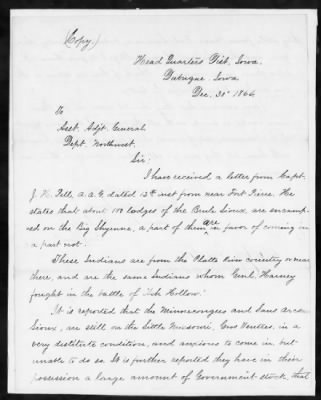 (Copy.)
Head Quarters Dist. Iowa.
Dubuque Iowa
Dec. 30" 1864
To
Asst. Adjt. General
Dept. Northwest.
Sir:
I have received a letter from Capt.
J. H. Pell, A. A. G. dated 13th inst from near Fort Pierre. He
states that about 100 lodges of the Brule Sioux, are encamp-
ed on the Big Shyenne, a part of them are in favor of coming in
a part not.
These Indians are from the Platte River country or near
there, and are the same Indians whom Genl. Harney
fought in the battle of Ash Hollow.
It is reported that the Minnecongies and Sans Arcs
Sioux, are still on the Little Missouri, Gros Ventres, in a
very destitute condition, and anxious to come in but
unable to do so. It is further reported they have in their
possession a large amount of Government stock, that